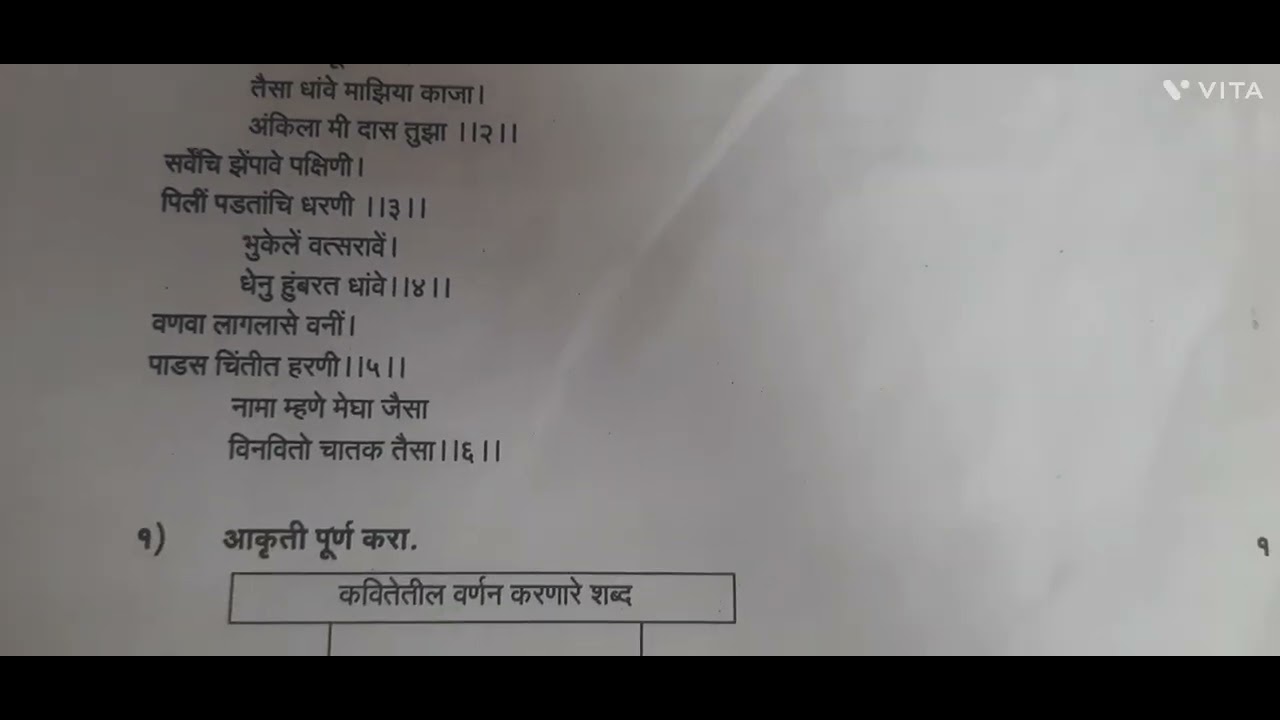 तैसा धांवे माझिया काजा।
VITA
अंकिला मी दास तुझा ।।२।।
सवेंचि झेंपावे पक्षिणी।
पिलीं पडतांचि धरणी ।।३।।
भुकेलें वत्सरावें।
धेनु हुंबरत धांवे।।४।।
वणवा लागलासे वनीं।
पाडस चिंतीत हरणी।।५।।
नामा म्हणे मेघा जैसा
विनवितो चातक तैसा।।६।।
१) आकृती पूर्ण करा. १
कवितेतील वर्णन करणारे शब्द